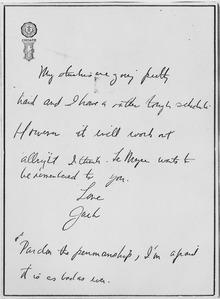 CHOATE
My studies are going pretty
hard and I have a rather tough schedule.
However it will work out
allright I think. Le Moyne wants to
be remembered to you.
Love
Jack
Pardon the penmanship, I'm afraid
it is as bad as ever.